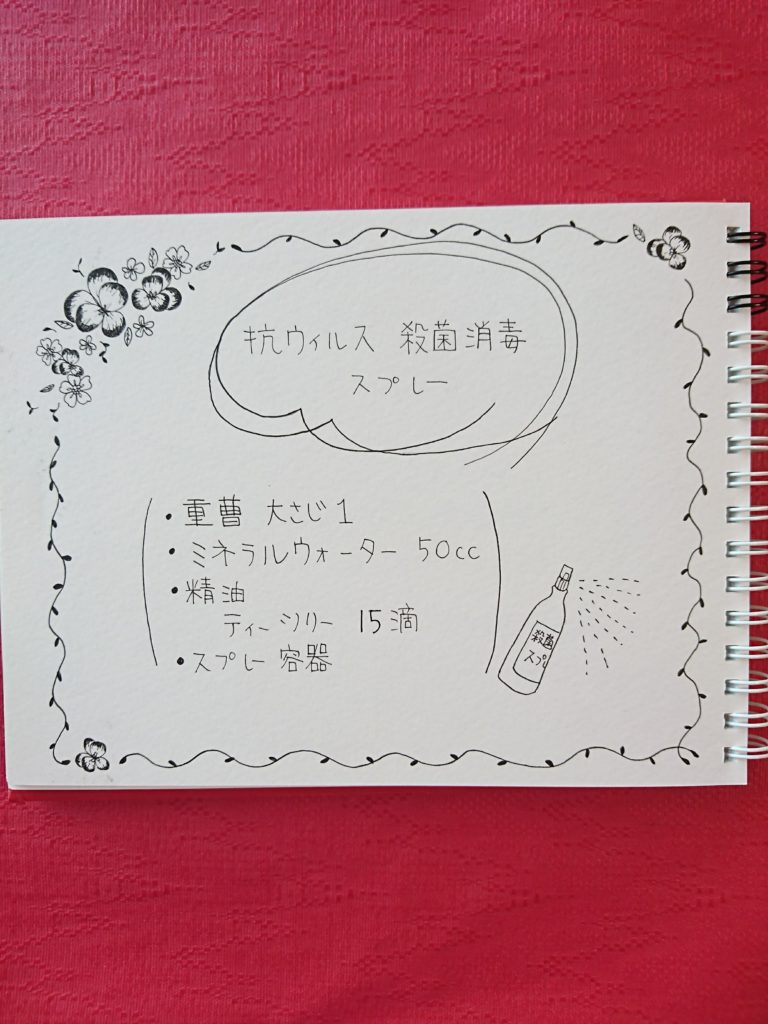 抗ウィルス 殺菌消毒
スプレー
・重曹 大さじ1
・ミネラルウォーター 50cc
・精油
ティーツリー 15滴
・スプレー容器
殺菌
スプレ